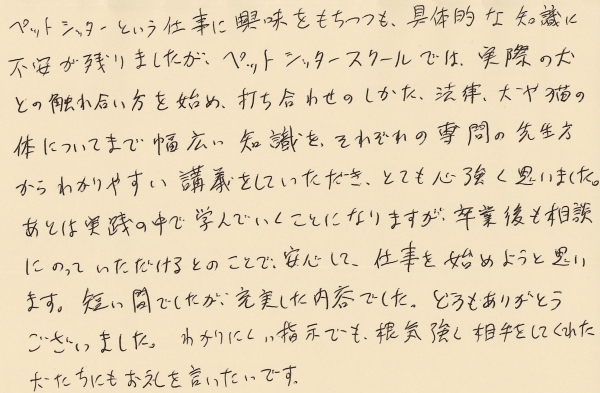 ペットシッターという仕事に興味をもちつつも、具体的な知識に
不安が残りましたが、ペットシッタースクールでは、実際の犬
との触れ合い方を始め、打ち合わせのしかた、法律、犬や猫の
体についてまで幅広い知識を、それぞれの専門の先生方
からわかりやすい講義をしていただき、とても心強く思いました。
あとは実践の中で学んでいくことになりますが、卒業後も相談
にのっていただけるとのことで、安心して、仕事を始めようと思い
ます。短い間でしたが、充実した内容でした。どうもありがとう
ございました。わかりにくい指示でも、根気強く相手をしてくれた
犬たちにもお礼を言いたいです。